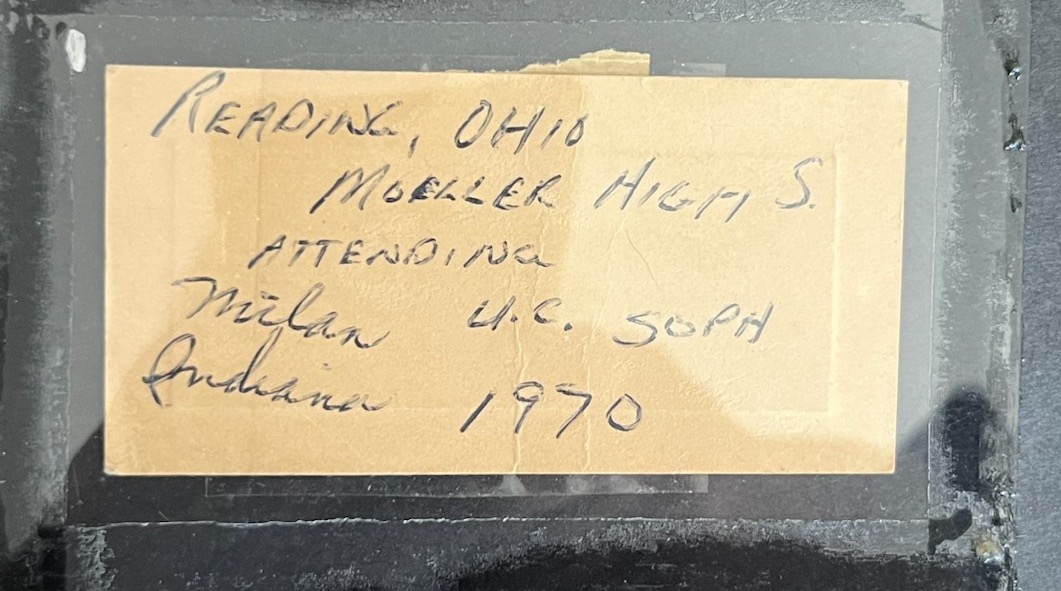 READING, OHIO
MOELLER HIGH S.
ATTENDING
Milan U.C. SOPH
Indiana 1970